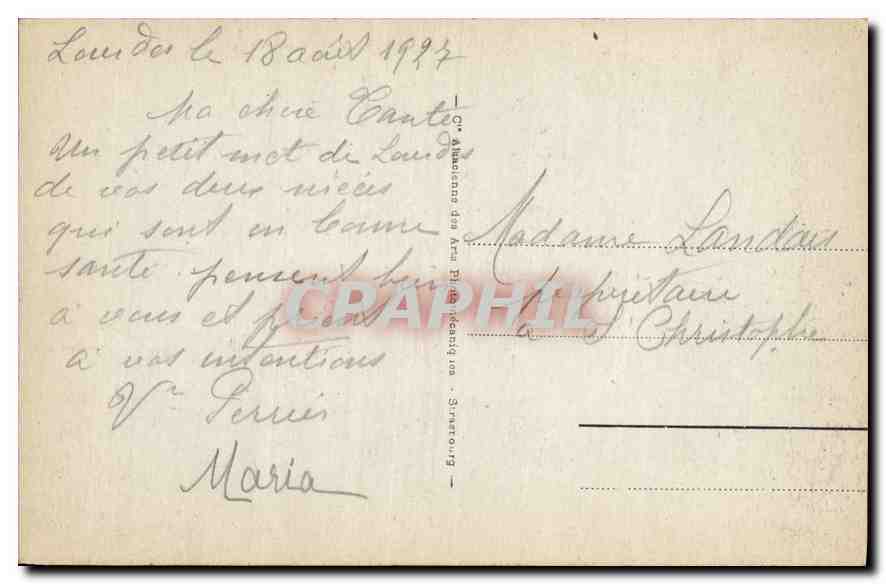 Lourdes le 18 août 1927
Ma chere Tante
Un petit mot de Lourdes
de vos deux nieces
qui sont en bonne
santé pensent bien
à vous et prient
à vos intentions
Vve Perrier
Maria
Cie Alsacienne des Arts Photomécaniques - Strasbourg
Madame Landais
propriétaire
à St Christophe
CPAPHIL